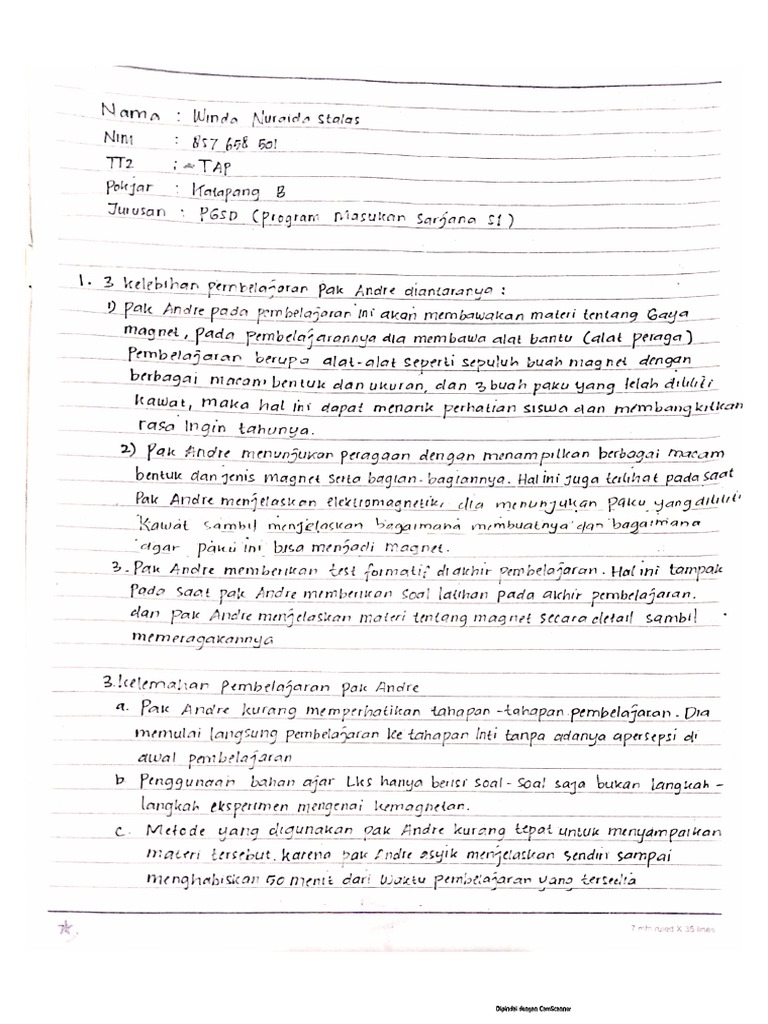 Nama : Winda Nuraida Stalas
Nim : 857 658 501
TT2 : - TAP
Pokjar : Katapang B
Jurusan : PGSD (Program Masukan Sarjana S1)
1. 3 kelebihan pembelajaran Pak Andre diantaranya :
1) Pak Andre pada pembelajaran ini akan membawakan materi tentang Gaya
magnet, pada pembelajarannya dia membawa alat bantu (alat peraga)
Pembelajaran berupa alat-alat seperti sepuluh buah magnet dengan
berbagai macam bentuk dan ukuran, dan 3 buah paku yang telah dililiti
kawat, maka hal ini dapat menarik perhatian siswa dan membangkitkan
rasa ingin tahunya.
2) Pak Andre menunjukan peragaan dengan menampilkan berbagai macam
bentuk dan jenis magnet serta bagian-bagiannya. Hal ini juga terlihat pada saat
Pak Andre menjelaskan elektromagnetik, dia menunjukan paku yang dililiti
kawat sambil menjelaskan bagaimana membuatnya dan bagaimana
agar paku ini bisa menjadi magnet.
3. Pak Andre memberikan test formatif di akhir pembelajaran. Hal ini tampak
Pada saat pak Andre memberikan soal latihan pada akhir pembelajaran.
dan Pak Andre menjelaskan materi tentang magnet secara detail sambil
memeragakannya
3. kelemahan Pembelajaran Pak Andre
a. Pak Andre kurang memperhatikan tahapan-tahapan pembelajaran. Dia
memulai langsung pembelajaran ke tahapan Inti tanpa adanya apersepsi di
awal pembelajaran
b Penggunaan bahan ajar Lks hanya berisi soal-soal saja bukan langkah-
langkah eksperimen mengenai kemagnetan.
c. Metode yang digunakan pak Andre kurang tepat untuk menyampaikan
materi tersebut. karena pak Andre asyik menjelaskan sendiri sampai
menghabiskan 50 menit dari waktu pembelajaran yang tersedia
7 mm ruled X 35 lines
Dipindai dengan CamScanner